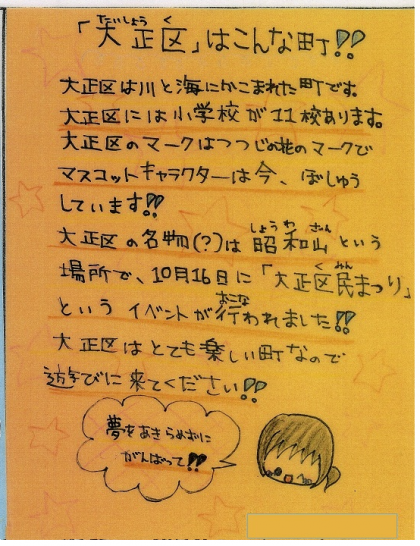 「大正区」はこんな町!!
たいしょう く
大正区は川と海にかこまれた町です。
大正区には小学校が11校あります。
大正区のマークはつつじの花のマークで
マスコットキャラクターは今、ぼしゅう
しています!!
しょうわ ざん
大正区の名物(?)は昭和山という
く みん
場所で、10月16日に「大正区民まつり」
おこな
というイベントが行われました!!
大正区はとても楽しい町なので
遊びに来てください!!
夢をあきらめずに
がんばって!!